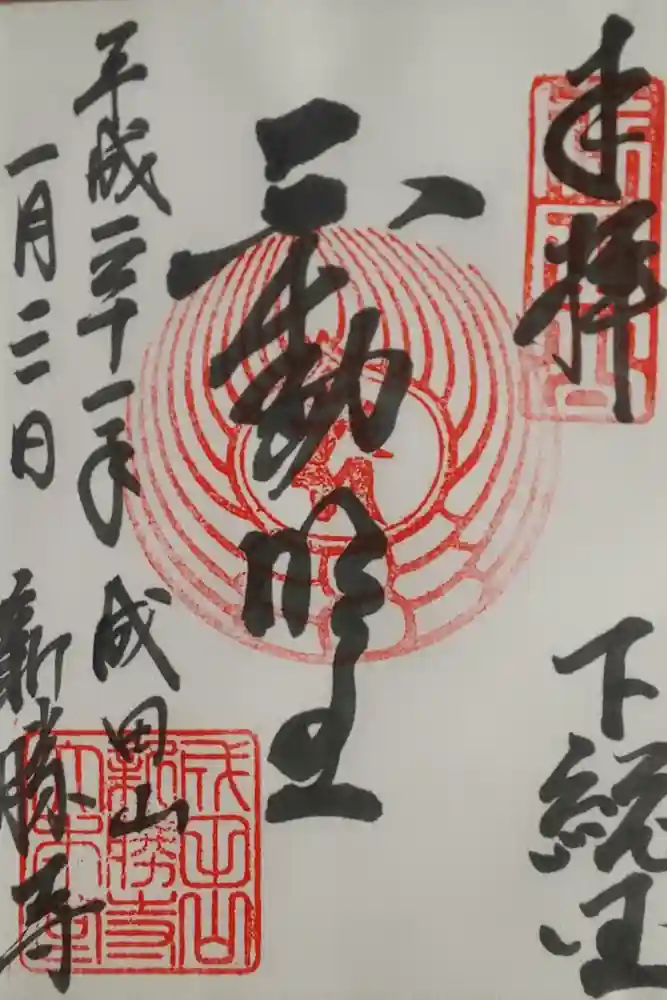 奉拝
下総国
不動明王
平成三十一年
一月三日
成田山
新勝寺
成田山
新勝寺